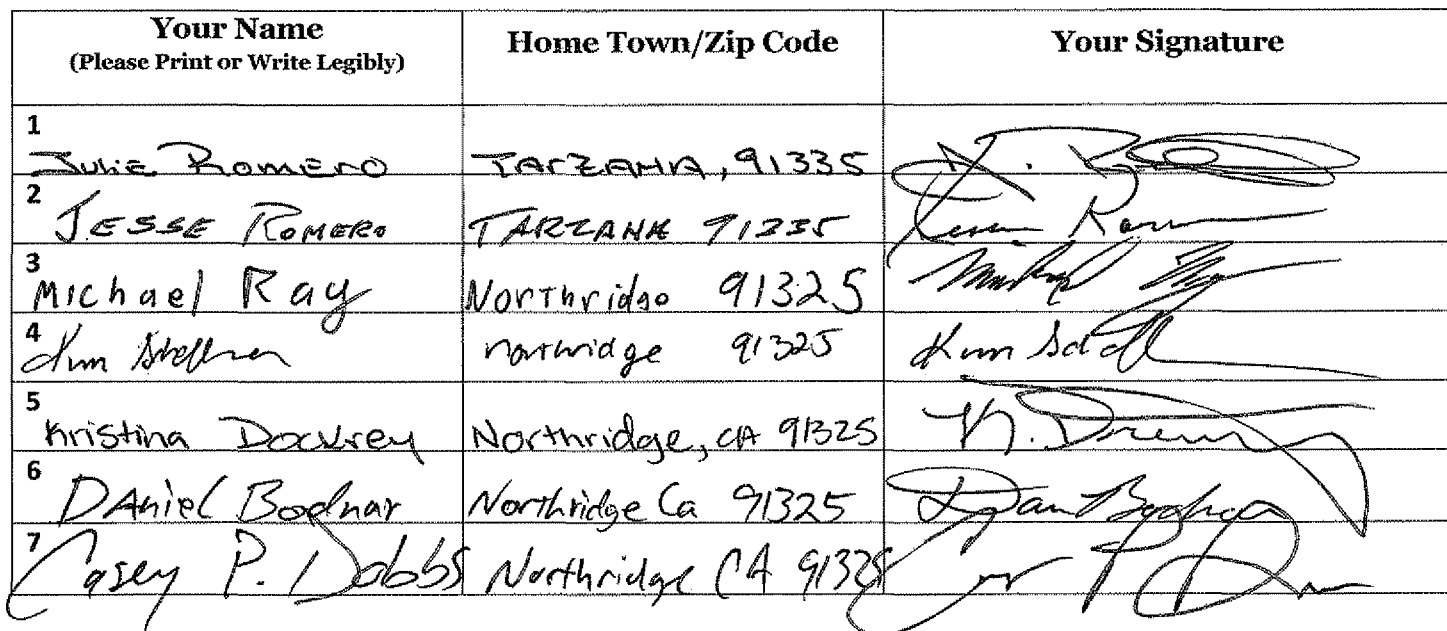 Your Name
(Please Print or Write Legibly)
Home Town/Zip Code
Your Signature
1
Julie Romero
TARZANA, 91335
J. R
2
JESSE ROMERO
TARZANA 91335
3
Michael Ray
Northridge 91325
4
Kim
northridge 91325
Kim
5
Kristina Dockrey
Northridge, CA 91325
K.
6
DAniel Bodnar
Northridge Ca 91325
Dan Bodnar
7
Casey P. Dobbs
Northridge CA 91325